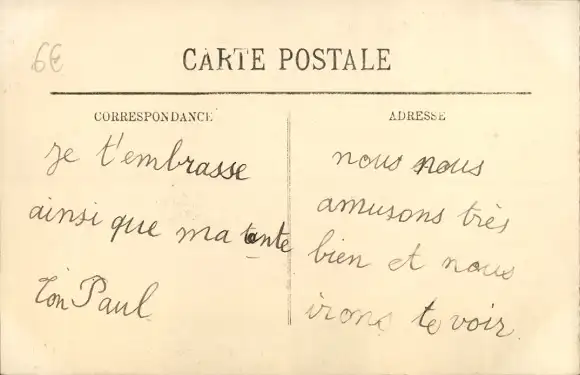 6€
CARTE POSTALE
CORRESPONDANCE
je t'embrasse
ainsi que ma tante
Ton Paul
ADRESSE
nous nous
amusons très
bien et nous
irons te voir